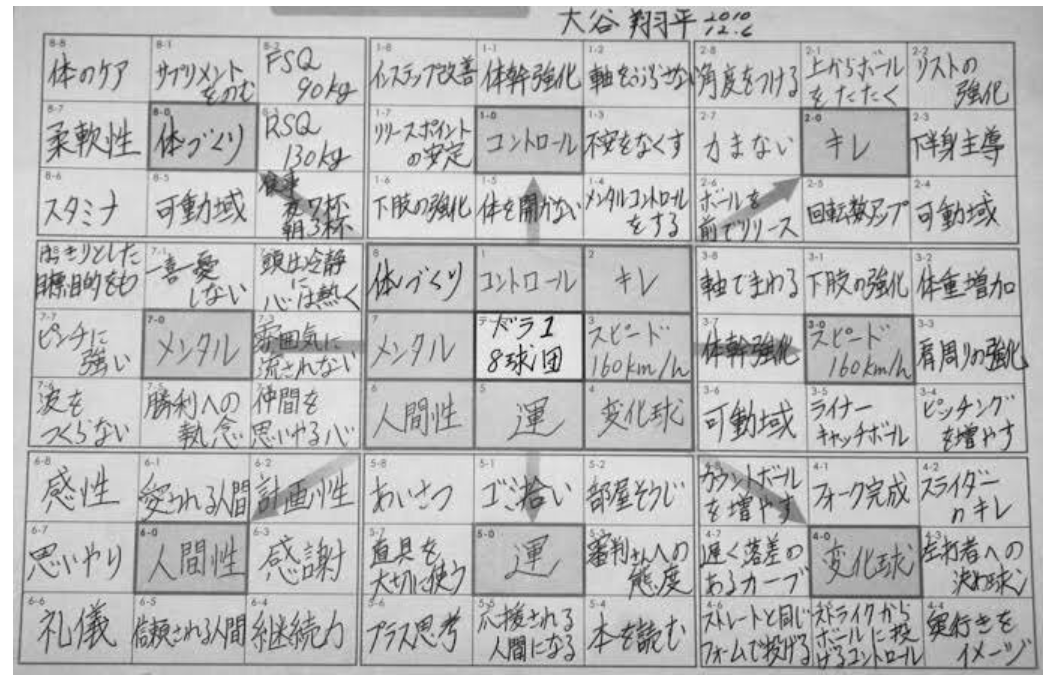 大谷 翔平 2010 12.6
8-8 体のケア
8-1 サプリメントをのむ
8-2 FSQ 90kg
1-8 インステップ改善
1-1 体幹強化
1-2 軸をぶらさない
2-8 角度をつける
2-1 上からボールをたたく
2-2 リストの強化
8-7 柔軟性
8-0 体づくり
8-3 RSQ 130kg
1-7 リリースポイントの安定
1-0 コントロール
1-3 不安をなくす
2-7 力まない
2-0 キレ
2-3 下半身主導
8-6 スタミナ
8-5 可動域
食事 夜7杯 朝3杯
1-6 下肢の強化
1-5 体を開かない
1-4 メンタルコントロールをする
2-6 ボールを前でリリース
2-5 回転数アップ
2-4 可動域
はっきりとした目標目的をもつ
7-1 一喜一憂しない
頭は冷静に心は熱く
8 体づくり
1 コントロール
2 キレ
3-8 軸でまわる
3-1 下肢の強化
3-2 体重増加
7-7 ピンチに強い
7-0 メンタル
7-3 雰囲気に流されない
7 メンタル
テーマ ドラ1 8球団
3 スピード 160km/h
3-7 体幹強化
3-0 スピード 160km/h
3-3 肩周りの強化
7-6 波をつくらない
7-5 勝利への執念
7-4 仲間を思いやる心
6 人間性
5 運
4 変化球
3-6 可動域
3-5 ライナーキャッチボール
3-4 ピッチングを増やす
6-8 感性
6-1 愛される人間
6-2 計画性
5-8 あいさつ
5-1 ゴミ拾い
5-2 部屋そうじ
4-8 カウントボールを増やす
4-1 フォーク完成
4-2 スライダーのキレ
6-7 思いやり
6-0 人間性
6-3 感謝
5-7 道具を大切に使う
5-0 運
5-3 審判さんへの態度
4-7 遅く落差のあるカーブ
4-0 変化球
4-3 左打者への決め球
6-6 礼儀
6-5 信頼される人間
6-4 継続力
5-6 プラス思考
5-5 応援される人間になる
5-4 本を読む
4-6 ストレートと同じフォームで投げる
ストライクからボールに投げるコントロール
4-4 奥行きをイメージ